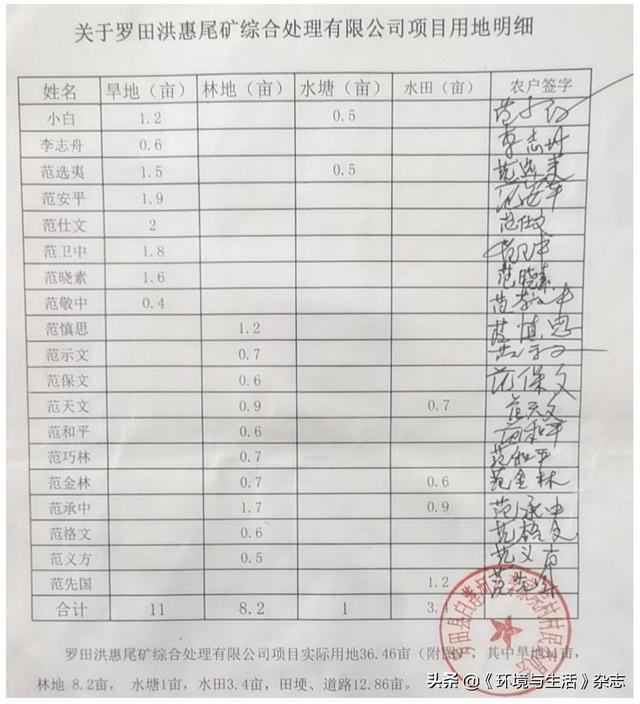 关于罗田洪惠尾矿综合处理有限公司项目用地明细
姓名 旱地（亩） 林地（亩） 水塘（亩） 水田（亩） 农户签字
小白 1.2 0.5
李志舟 0.6 李志舟
范选夷 1.5 0.5 范选夷
范安平 1.9 范安平
范仕文 2 范仕文
范卫中 1.8 范卫中
范晓素 1.6 范晓素
范敬中 0.4 范敬中
范慎思 1.2 范慎思
范示文 0.7 范示文
范保文 0.6 范保文
范天文 0.9 0.7 范天文
范和平 0.6 范和平
范巧林 0.7 范和平
范金林 0.7 0.6 范金林
范承中 1.7 0.9 范承中
范格文 0.6 范格文
范义方 0.5 范义方
范先国 1.2
合计 11 8.2 1 3.4
罗田洪惠尾矿综合处理有限公司项目实际用地36.46亩（附图），其中旱地11亩，
林地 8.2亩， 水塘1亩，水田3.4亩，田埂、道路12.86亩。
罗田县白莲河
村村民委员会
头条 @《环境与生活》杂志